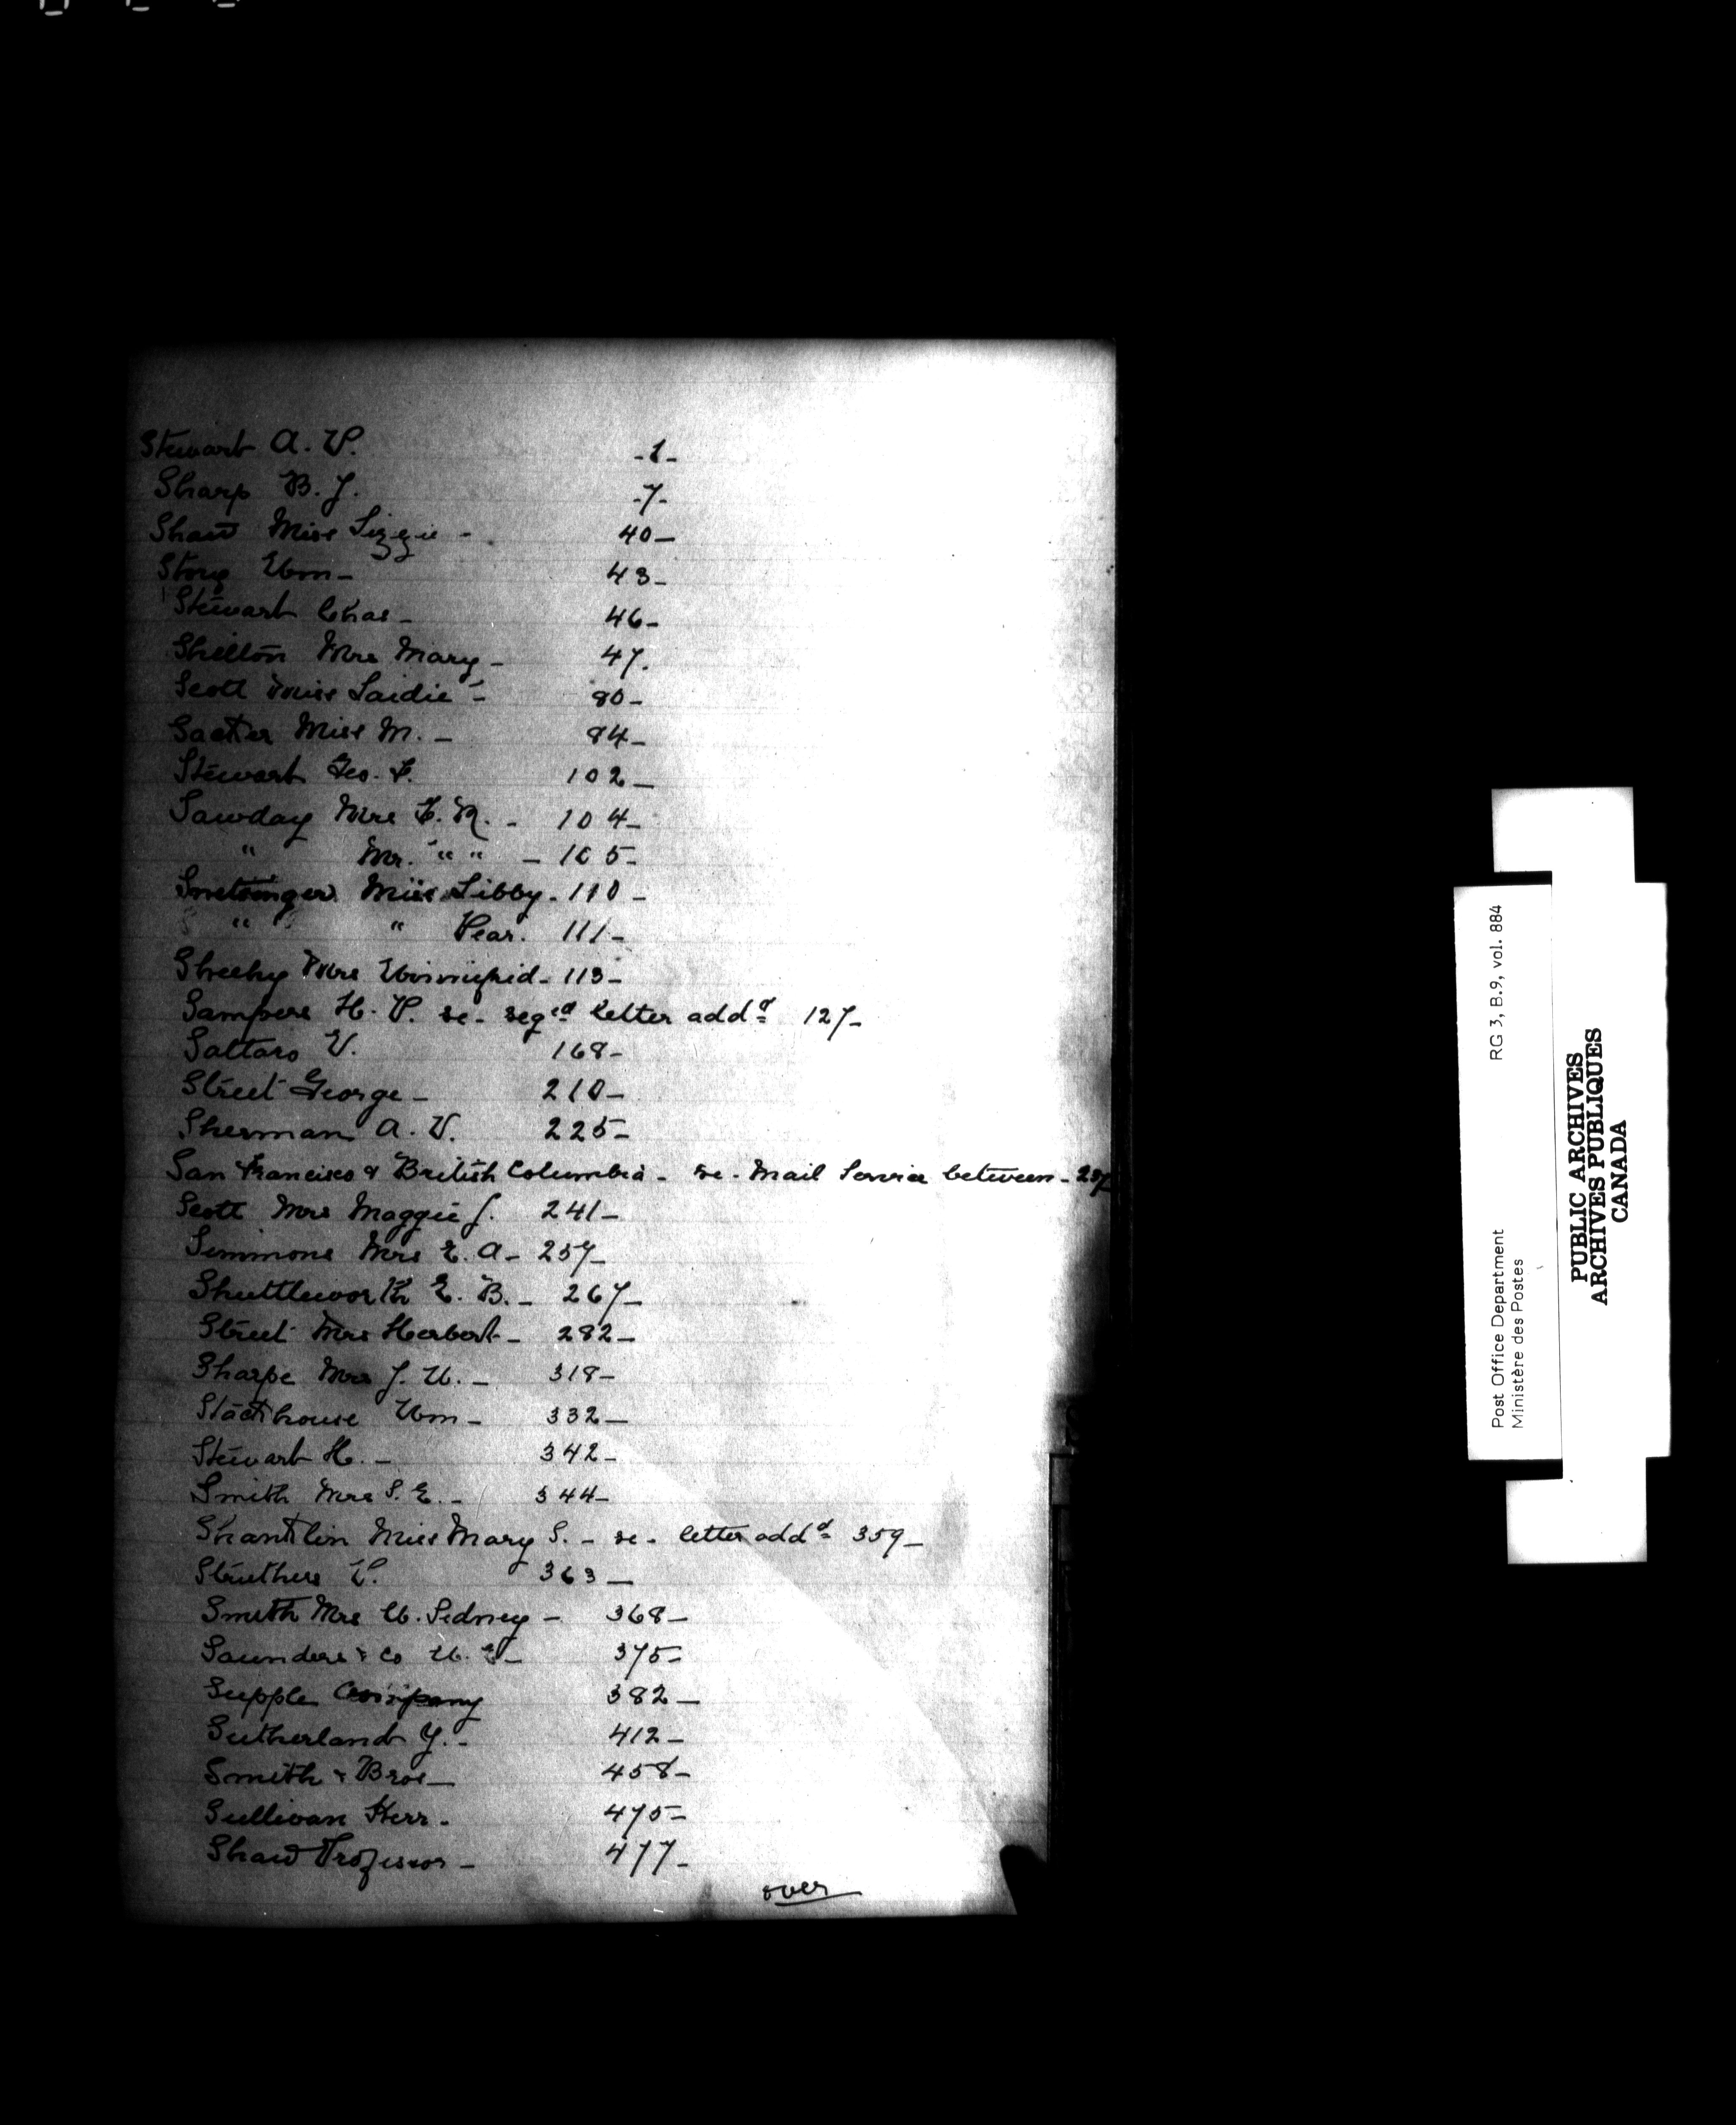 Stewart A. P. -1-
Sharp B. J. -7-
Shaw Miss Lizzie - 40-
Story Wm - 43-
Stewart Chas - 46-
Shelton Mrs Mary - 47.
Scott Miss Saidie - 80-
Miss M. - 84-
Stewart Geo. F. 102-
Sawday Mrs F. R. - 104-
" Mr. " " - 105-
Smetsinger Miss Libby - 110-
" " Pear. 111-
Sheehy Mrs Winnifrid - 113-
Sampers H. P. re - regd letter addd 127-
Saltaro V. 168-
Street George - 210-
Sherman A. V. 225-
San Francisco & British Columbia - re - Mail Service between -
Scott Mrs Maggie J. 241-
Simmons Mrs E. A - 257-
Shuttleworth E. B. - 267-
Street Mrs Herbert - 282-
Sharpe Mrs J. W. - 318-
Stackhouse Wm - 332-
Stewart H. - 342-
Smith Mrs S. E. - 344-
Shantlin Miss Mary S. - re - letter addd 359-
Struthers 363-
Smith Mrs W. Sidney - 368-
Saunders & Co 375-
Supple Company 382-
Sutherland Y. - 412-
Smith & Bros - 458-
Sullivan Kerr - 475-
Shaw Professor - 477-
over
Post Office Department RG 3, B.9, vol. 884
Ministère des Postes
PUBLIC ARCHIVES
ARCHIVES PUBLIQUES
CANADA